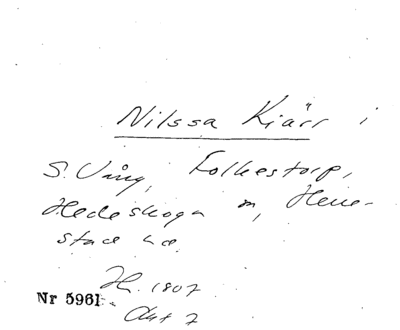 Nilssa Kiärr i
S. Vång, Folkestorp,
Hedeskoga m, Herre-
stad hd.
Hs. 1807
Nr 5961
Akt 7